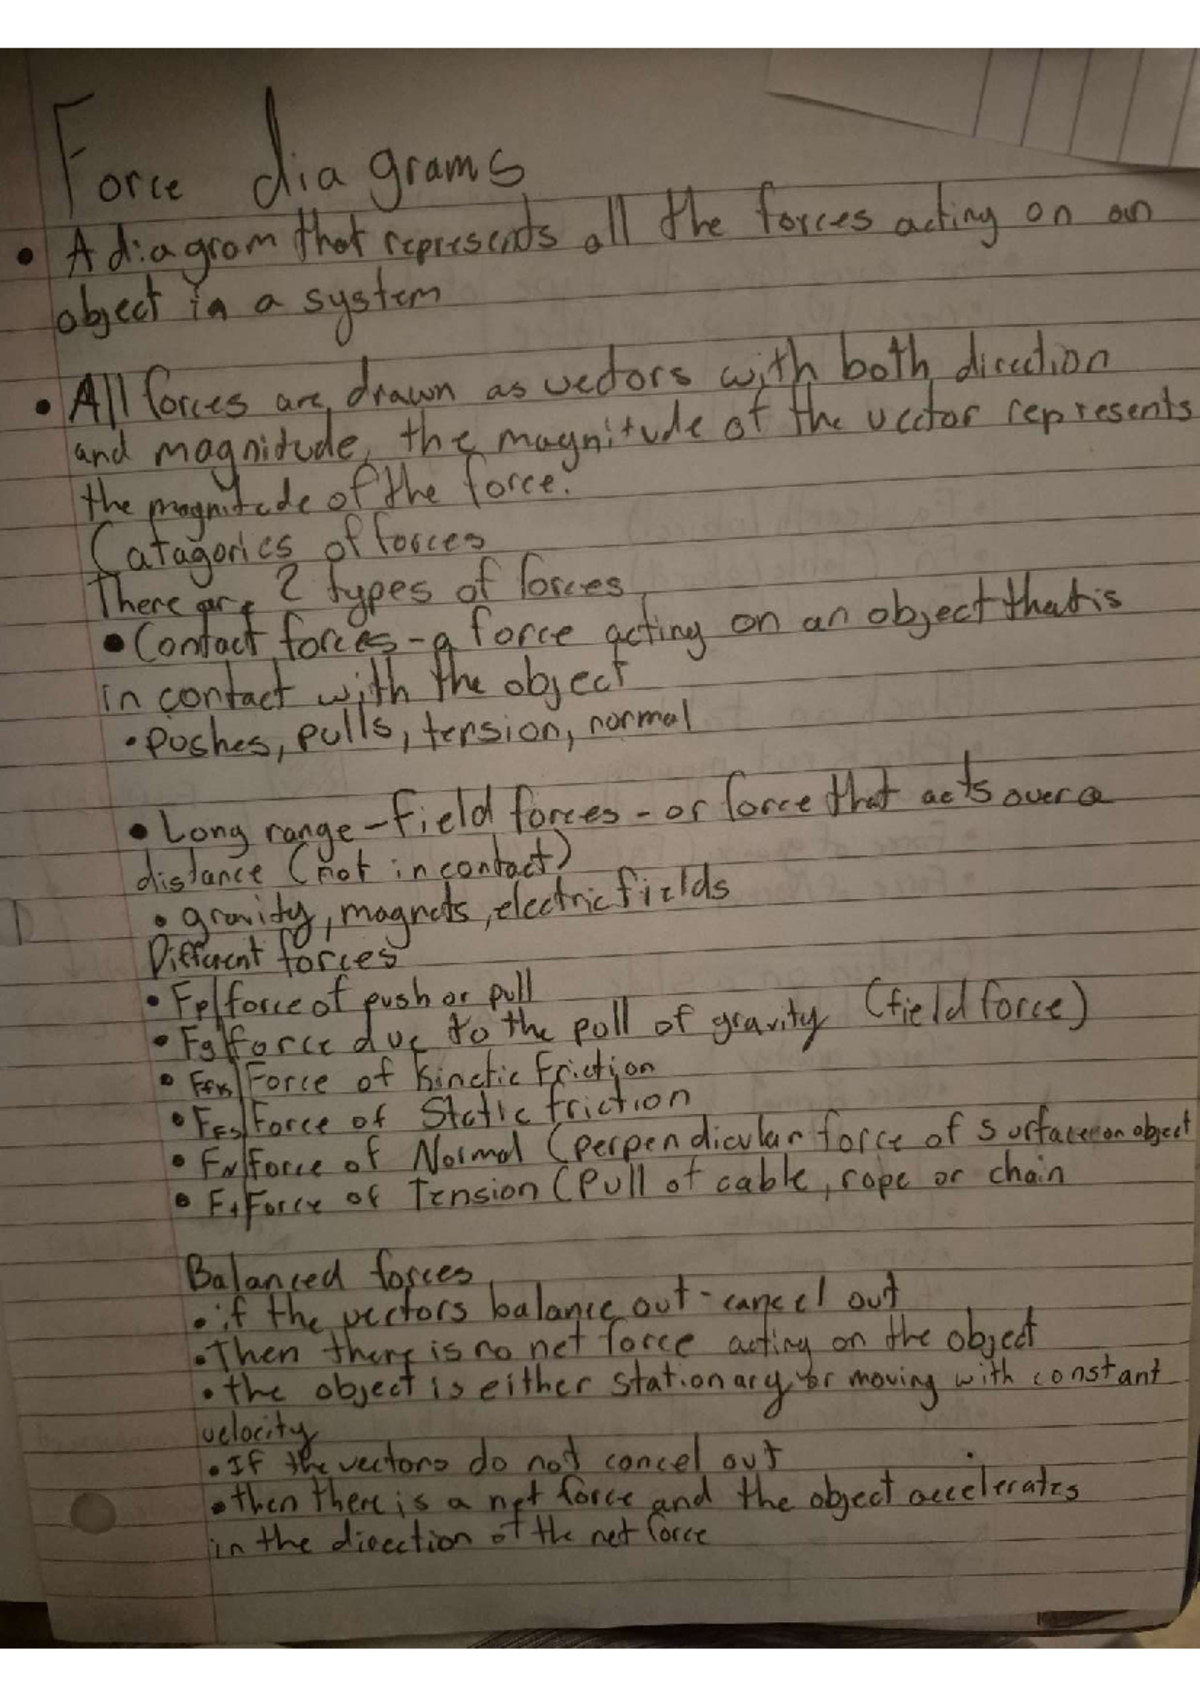 Force diagrams
• A diagram that represents all the forces acting on an
object in a system
• All forces are drawn as vectors with both direction
and magnitude, the magnitude of the vector represents
the magnitude of the force.
Catagories of forces
There are 2 types of forces
• Contact forces - a force acting on an object that is
in contact with the object
• pushes, pulls, tension, normal
• Long range - field forces - or force that acts over a
distance (not in contact)
• gravity, magnets, electric fields
Different forces
• Fp|force of push or pull
• Fg|force due to the pull of gravity (field force)
• Ffk|Force of Kinetic Friction
• Ffs|Force of Static friction
• FN|Force of Normal (perpendicular force of surface on object
• Ft|Force of Tension (Pull of cable, rope or chain
Balanced forces
• if the vectors balance out - cancel out
• Then there is no net force acting on the object
• the object is either stationary or moving with constant
velocity
• If the vectors do not cancel out
• then there is a net force and the object accelerates
in the direction of the net force